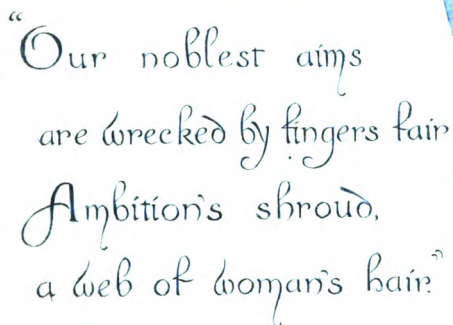 “Our noblest aims
are wrecked by fingers fair
Ambition's shroud,
a web of woman's hair.”